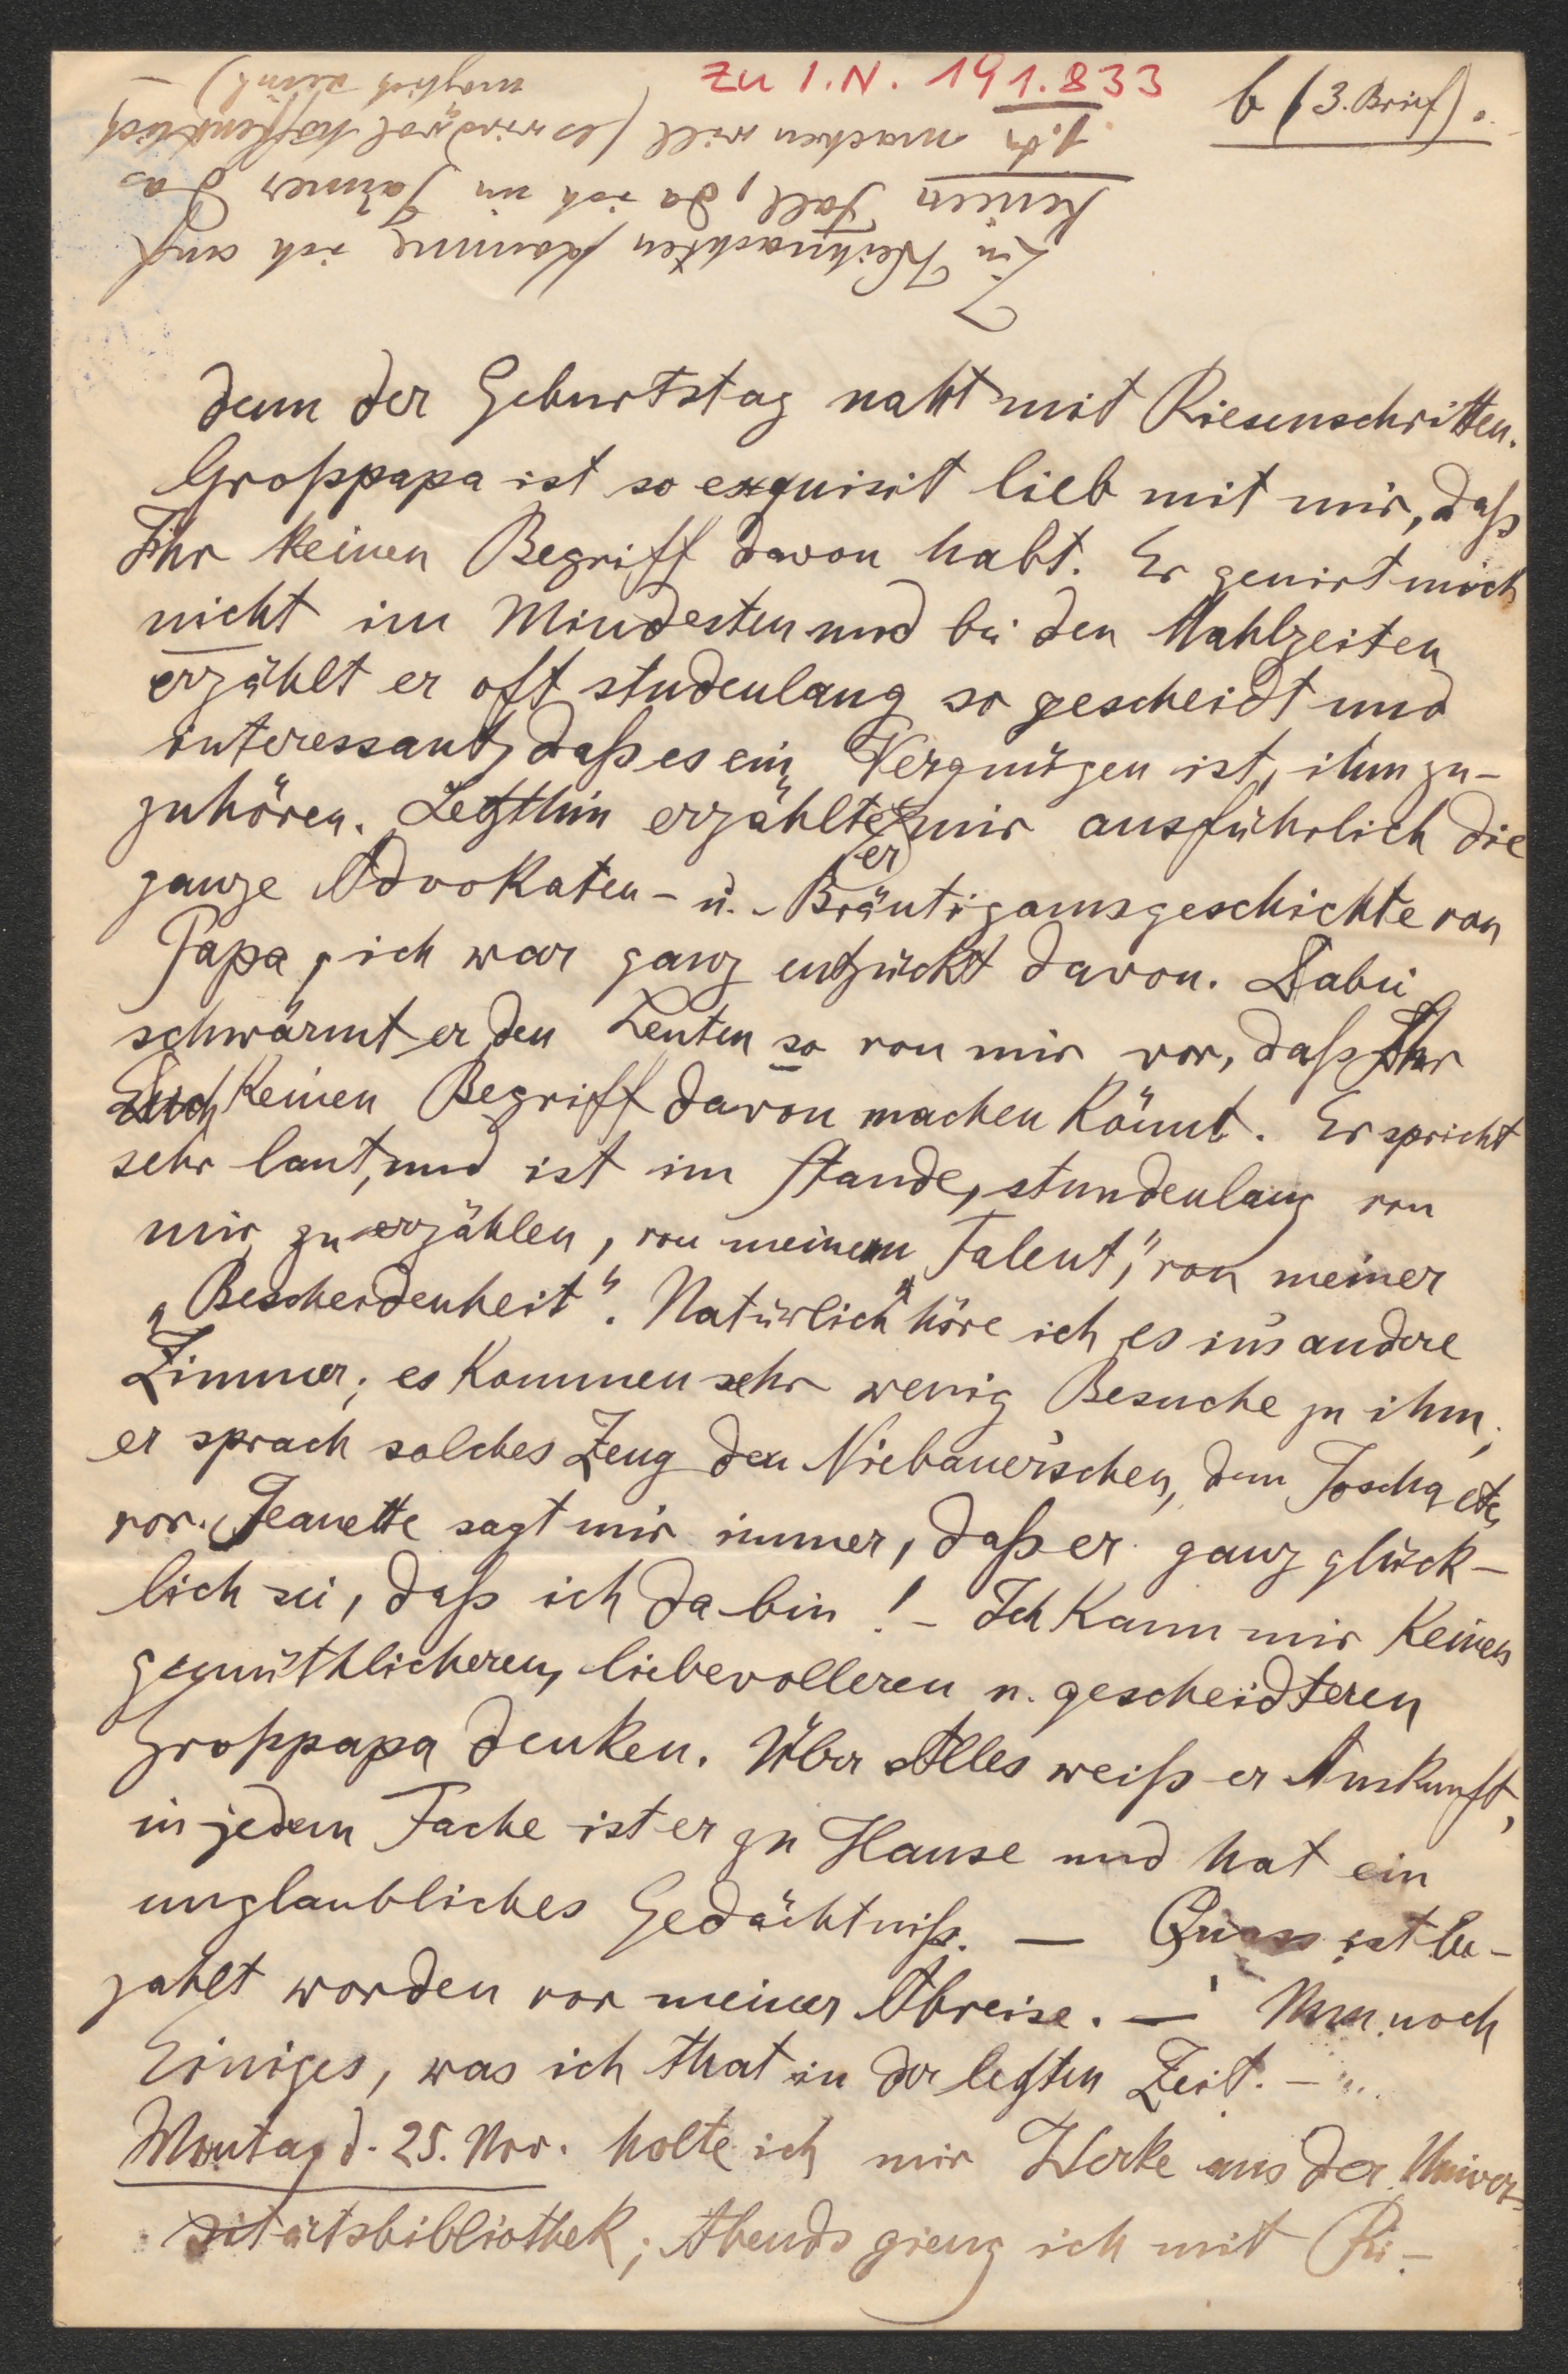 zu I.N. 191.833
b (3. Brief).
Zu Weihnachten komme ich auf
keinen Fall, da ich im Jänner das
machen will (es wird wol hoffentlich
möglich sein!) –
denn der Geburtstag naht mit Riesenschritten.
Großpapa ist so exquisit lieb mit mir, daß
Ihr keinen Begriff davon habt. Er genirt mich
nicht im Mindesten und bei den Mahlzeiten
erzählt er oft studenlang so gescheidt und
interessant, daß es ein Vergnügen ist, ihm zu-
zuhören. Letzthin erzählte er mir ausführlich die
ganze Advokaten- u. Bräutigamsgeschichte von
Papa, ich war ganz entzückt davon. Dabei
schwärmt er den Leuten so von mir vor, daß Ihr
Euch keinen Begriff davon machen könnt. Er spricht
sehr laut, und ist im Stande, stundenlang von
mir zu erzählen, von meinem „Talent", von meiner
„Bescheidenheit". Natürlich höre ich es in's andere
Zimmer; es kommen sehr wenig Besuche zu ihm;
er sprach solches Zeug den Niebauer'schen, dem Joscha etc,
vor. Jeanette sagt mir immer, daß er ganz glück-
lich sei, daß ich da bin! – Ich kann mir keinen
gemüthlicheren, liebevolleren u. gescheidteren
Großpapa denken. Über Alles weiß er Auskunft,
in jedem Fache ist er zu Hause und hat ein
unglaubliches Gedächtniß. – ist be-
zahlt worden vor meiner Abreise. – Nun noch
Einiges, was ich that in der letzten Zeit. –
Montag d. 25. Nov. holte ich mir Werke aus der Univer-
sitätsbibliothek; Abends gieng ich mit Ri-